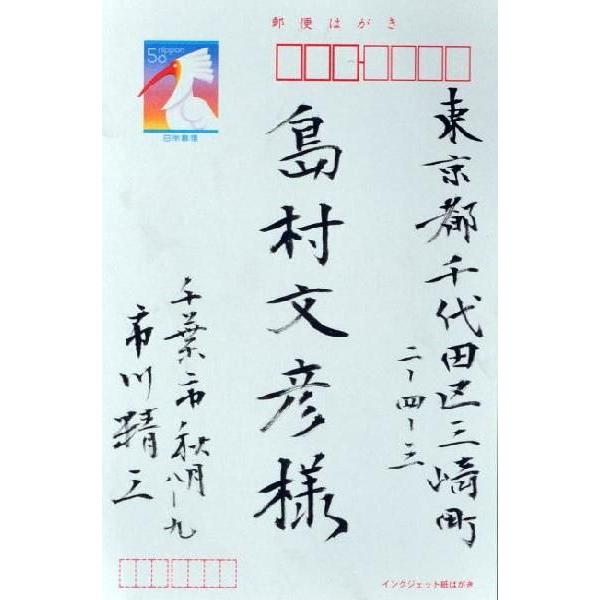 郵便はがき
50 nippon
日本郵便
東京都千代田区三崎町
二ー四ー三
島村文彦様
千葉市秋月八ー九
市川精三
インクジェット紙はがき